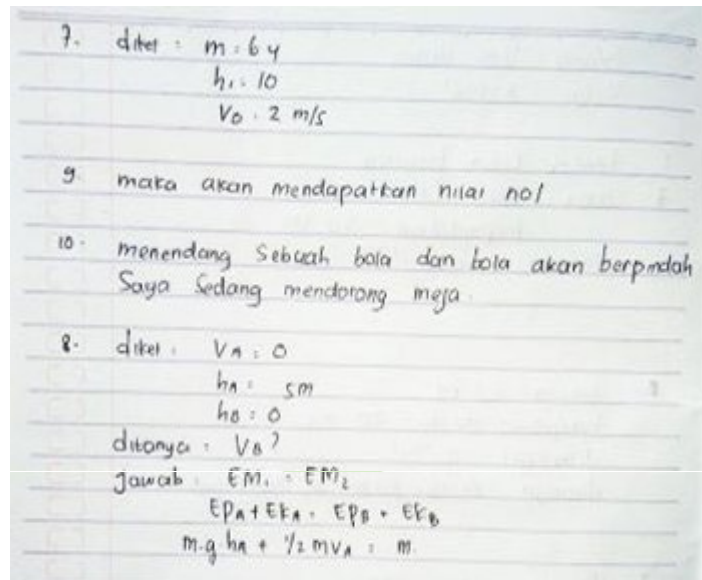 7. diket : m : 64
h₁ : 10
V₀ : 2 m/s
9. maka akan mendapatkan nilai nol
10. menendang sebuah bola dan bola akan berpindah
Saya sedang mendorong meja.
8. diket : VA : 0
hA : 5m
hB : 0
ditanya : VB?
Jawab : EM₁ = EM₂
EPA + EKA = EPB + EKB
m.g hA + 1/2 mVA = m.